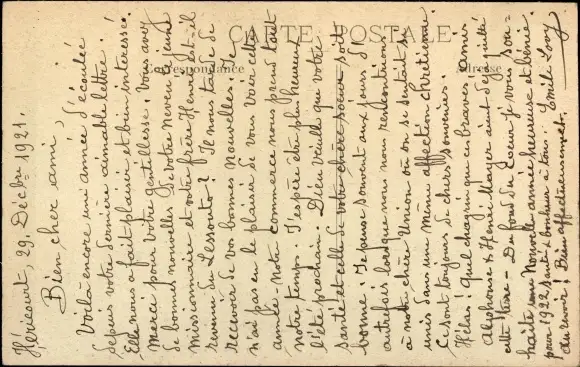 CARTE POSTALE
Correspondance
Adresse
Héricourt, 29. Décbr 1921.
Bien cher ami,
Voilà encore une année d'écoulée
depuis votre dernière aimable lettre!
Elle nous a fait plaisir et bien intéressé.
Merci pour votre gentillesse. Vous avez
de bonnes nouvelles de votre neveu le jeune
missionnaire et votre frère Henri est-il
revenu du Lessouto? Il nous tarde de
recevoir de vos bonnes nouvelles. Je
n'ai pas eu le plaisir de vous voir cette
année. Notre commerce nous prend tout
notre temps. J'espère être plus heureux
l'été prochain. Dieu veuille que votre
santé et celle de votre chère sœur soit
bonne. Je pense souvent aux jours d'
autrefois lorsque nous nous rencontrions
à notre chère Union où on se sentait si
unis dans une même affection chrétienne.
Ce sont toujours de chers souvenirs.
Hélas! Quel chagrin que ces braves amis
Alophonse & Henri Mayer aient déjà quitté
cette terre - Du fond du cœur je vous sou=
haite une Nouvelle année heureuse et bénie.
pour 1922 santé & bonheur à tous. Emile Lovy
au revoir! Bien affectueusement.